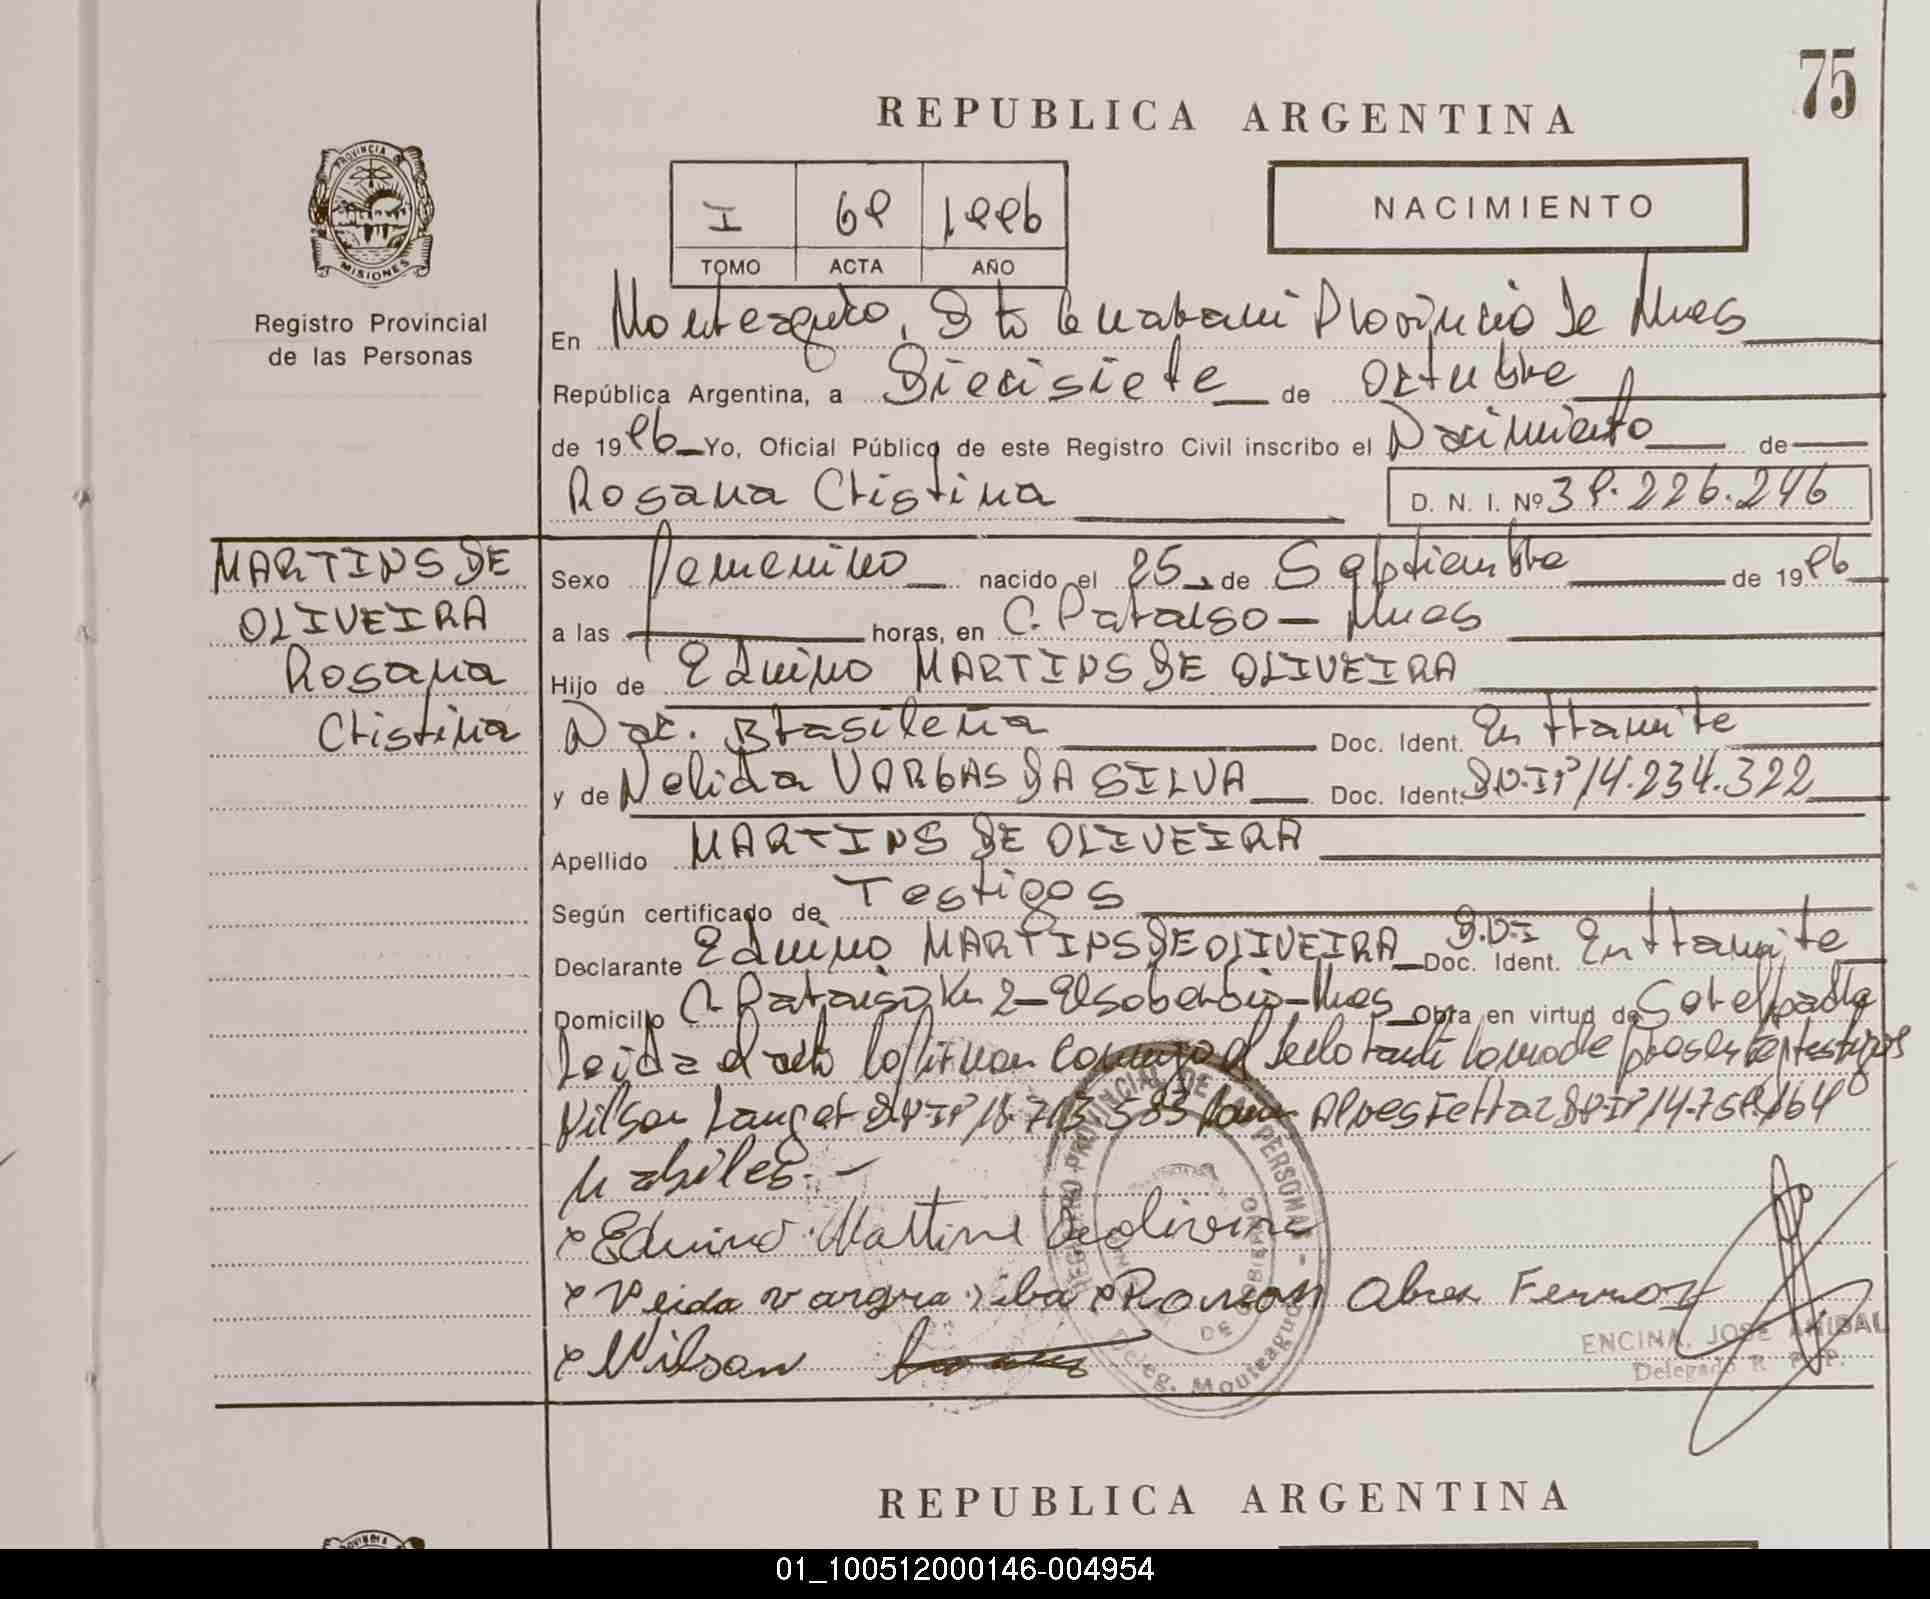 75
REPUBLICA ARGENTINA
PROVINCIA DE
MISIONES
Registro Provincial
de las Personas
NACIMIENTO
I 69 1996
TOMO ACTA AÑO
En Monteagudo, Dto Guarani Provincia de Mnes
República Argentina, a Diecisiete de Octubre
de 1996 Yo, Oficial Público de este Registro Civil inscribo el Nacimiento de
Rosana Cristina D. N. I. Nº 39.226.246
MARTINS DE
OLIVEIRA
Rosana
Cristina
Sexo Femenino nacido el 25 de Septiembre de 1996
a las horas, en C. Paraiso - Mnes
Hijo de Eduino MARTINS DE OLIVEIRA
Nac. Brasileña Doc. Ident. En tramite
y de Nelida VARGAS DA SILVA Doc. Ident. D.N.Iº 14.234.322
Apellido MARTINS DE OLIVEIRA
Según certificado de Testigos
Declarante Eduino MARTINS DE OLIVEIRA Doc. Ident. D.N.I En tramite
Domicilio C. Paraiso Km 2 - El soberbio - Mnes Obra en virtud de Ser el padre
Leida el acta la firman conmigo el declarante la madre testigos
Nilson D.N.Iº Alves Ferraz D.N.Iº
habiles. -
x Eduino Martins Deolivira
x Neida vargra x Ramon Alves Ferraz
x Nilson
REGISTRO PROVINCIAL DE LAS PERSONAS
DE
Deleg. Monteagudo
ENCINA, JOSE ANIBAL
Delegado R. P. P.
REPUBLICA ARGENTINA
01_100512000146-004954